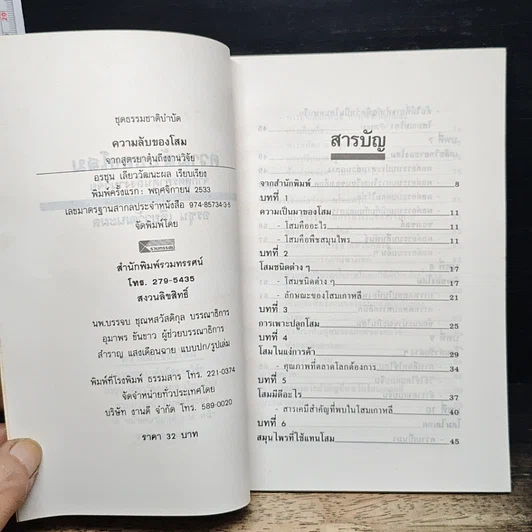 ชุดธรรมชาติบำบัด
ความลับของโสม
จากสูตรยาตุ๋นถึงงานวิจัย
อรชุน เลียววัฒนะผล เรียบเรียง
พิมพ์ครั้งแรก: พฤศจิกายน 2533
เลขมาตรฐานสากลประจำหนังสือ 974-85734-3-5
จัดพิมพ์โดย
สำนักพิมพ์รวมทรรศน์
โทร. 279-5435
สงวนลิขสิทธิ์
นพ.บรรจบ ชุณหสวัสดิกุล บรรณาธิการ
อุมาพร ขันขาว ผู้ช่วยบรรณาธิการ
สำราญ แสงเดือนฉาย แบบปก/รูปเล่ม
พิมพ์ที่โรงพิมพ์ ธรรมสาร โทร. 221-0374
จัดจำหน่ายทั่วประเทศโดย
บริษัท งานดี จำกัด โทร. 589-0020
ราคา 32 บาท
สารบัญ
จากสำนักพิมพ์ 8
บทที่ 1
ความเป็นมาของโสม 11
- โสมคืออะไร 11
- โสมคือพืชสมุนไพร 11
บทที่ 2
โสมชนิดต่าง ๆ 17
- โสมชนิดต่าง ๆ 17
- ลักษณะของโสมเกาหลี 21
บทที่ 3
การเพาะปลูกโสม 25
บทที่ 4
โสมในแง่การค้า 29
- คุณภาพที่ตลาดโลกต้องการ 34
บทที่ 5
โสมมีดีอะไร 37
- สารเคมีสำคัญที่พบในโสมเกาหลี 40
บทที่ 6
สมุนไพรที่ใช้แทนโสม 45